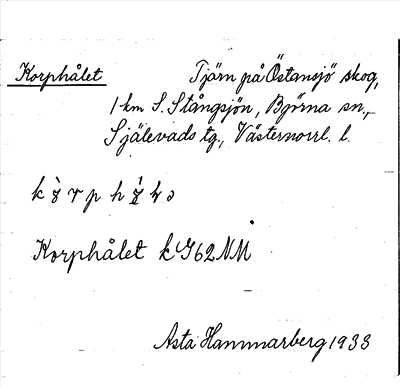 Korphålet Tjärn på Östansjö skog,
1 km S. Stångsjön, Björna sn,
Själevads tg., Västernorrl. l.
Korphålet k G62NM
Asta Hammarberg 1933